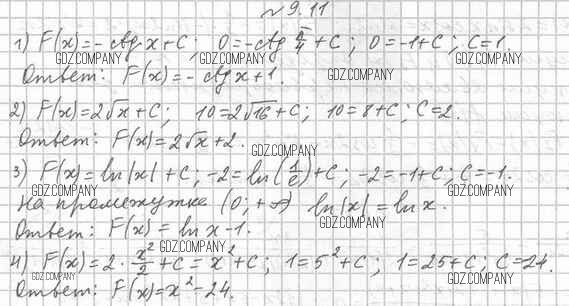 № 9.11
1) F(x)=-ctg x+C; 0=-ctg π/4+C; 0=-1+C; C=1.
GDZ.COMPANY GDZ.COMPANY GDZ.COMPANY
Ответ: F(x)=-ctg x+1. GDZ.COMPANY
2) F(x)=2√x+C; 10=2√16+C; 10=8+C; C=2.
Ответ: F(x)=2√x+2. GDZ.COMPANY
3) F(x)=ln|x|+C; -2=ln(1/e)+C; -2=-1+C; C=-1.
GDZ.COMPANY GDZ.COMPANY GDZ.COMPANY
На промежутке (0;+∞) ln|x|=ln x.
Ответ: F(x)=ln x-1. GDZ.COMPANY
4) F(x)=2·x²/2+C=x²+C; 1=5²+C; 1=25+C; C=24.
GDZ.COMPANY GDZ.COMPANY
Ответ: F(x)=x²-24.